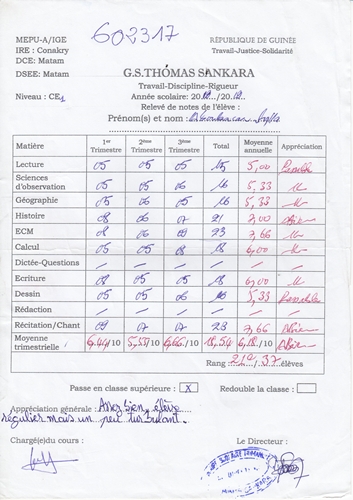 602317
MEPU-A/IGE
RÉPUBLIQUE DE GUINÉE
IRE : Conakry
Travail-Justice-Solidarité
DCE: Matam
DSEE: Matam
G.S.THOMAS SANKARA
Travail-Discipline-Rigueur
Niveau : CE1
Année scolaire: 20 /20
Relevé de notes de l'élève :
Prénom(s) et nom :
Matière 1er Trimestre 2ème Trimestre 3ème Trimestre Total Moyenne annuelle Appréciation
Lecture 05 05 05 15 5,00 Passable
Sciences d'observation 05 05 06 16 5,33 //
Géographie 05 05 06 16 5,33 //
Histoire 08 06 07 21 7,00 A.Bien
ECM 08 06 09 23 7,66 //
Calcul 05 05 08 18 6,00 //
Dictée-Questions / / / / / /
Ecriture 08 05 05 18 6,00 //
Dessin 05 05 06 16 5,33 Passable
Rédaction / / / / / /
Récitation/Chant 09 07 07 23 7,66 A.Bien
Moyenne trimestrielle 6,44/10 5,55/10 6,66/10 18,54 /10 A.Bien
Rang 21e / 37 élèves
Passe en classe supérieure : X Redouble la classe :
Appréciation générale : Assez bien, élève
régulier mais un peu turbulent.
Chargé(e)du cours : Le Directeur :